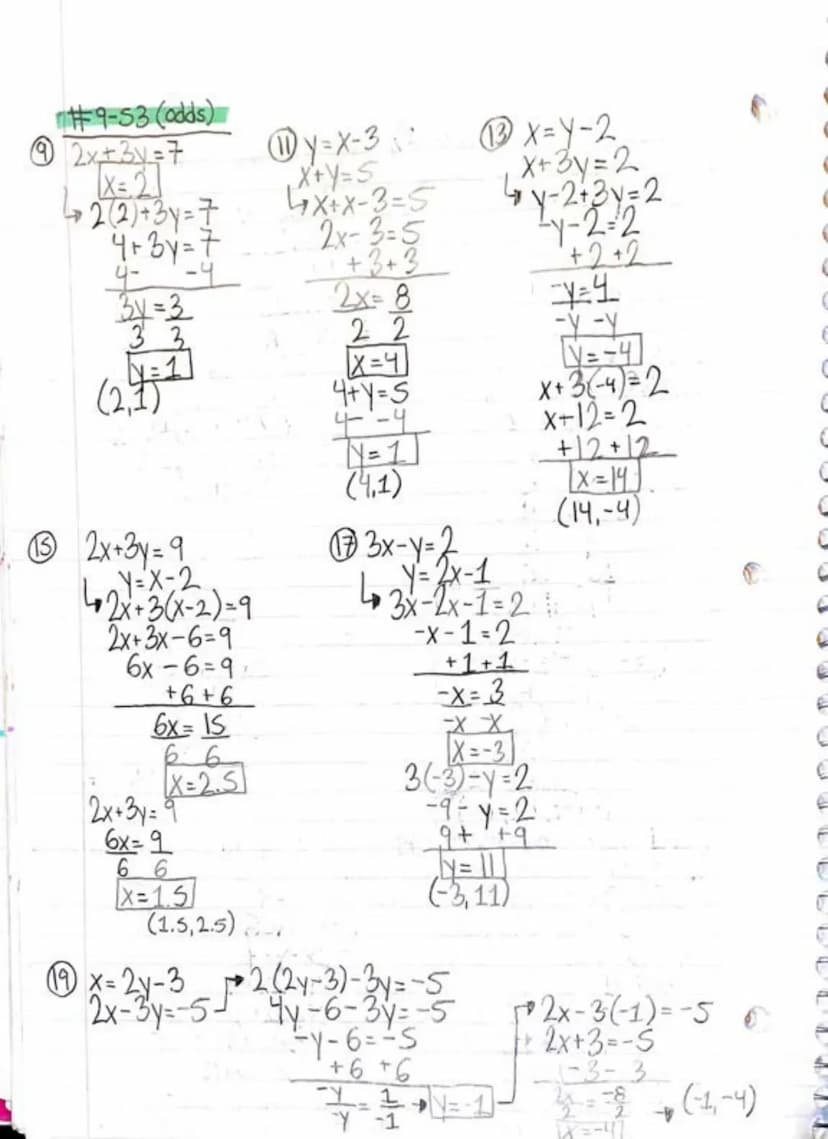 #9-53 (odds)
⑨ 2x+3y=7
x=2
↳ 2(2)+3y=7
4+3y=7
4- -4
3y=3
3 3
y=1
(2,1)
⑪ y=x-3
x+y=5
↳ x+x-3=5
2x-3=5
+3+3
2x=8
2 2
x=4
4+y=5
4- -4
y=1
(4,1)
⑬ x=y-2
x+3y=2
↳ y-2+3y=2
-y-2=2
+2+2
-y=4
-y -y
y=-4
x+3(-4)=2
x+12=2
+12+12
x=14
(14,-4)
⑮ 2x+3y=9
y=x-2
↳ 2x+3(x-2)=9
2x+3x-6=9
6x-6=9
+6+6
6x=15
6 6
x=2.5
2x+3y=9
6x=9
6 6
x=1.5
(1.5,2.5)
⑰ 3x-y=2
y=2x-1
↳ 3x-2x-1=2
-x-1=2
+1+1
-x=3
-x -x
x=-3
3(-3)-y=2
-9-y=2
9+ +9
y=11
(-3,11)
⑲ x=2y-3
2x-3y=-5
2(2y-3)-3y=-5
4y-6-3y=-5
-y-6=-5
+6 +6
-y/-y = 1/-1 → y=-1
2x-3(-1)=-5
2x+3=-5
-3-3
2x/2 = -8/2
x=-4
→ (-1,-4)